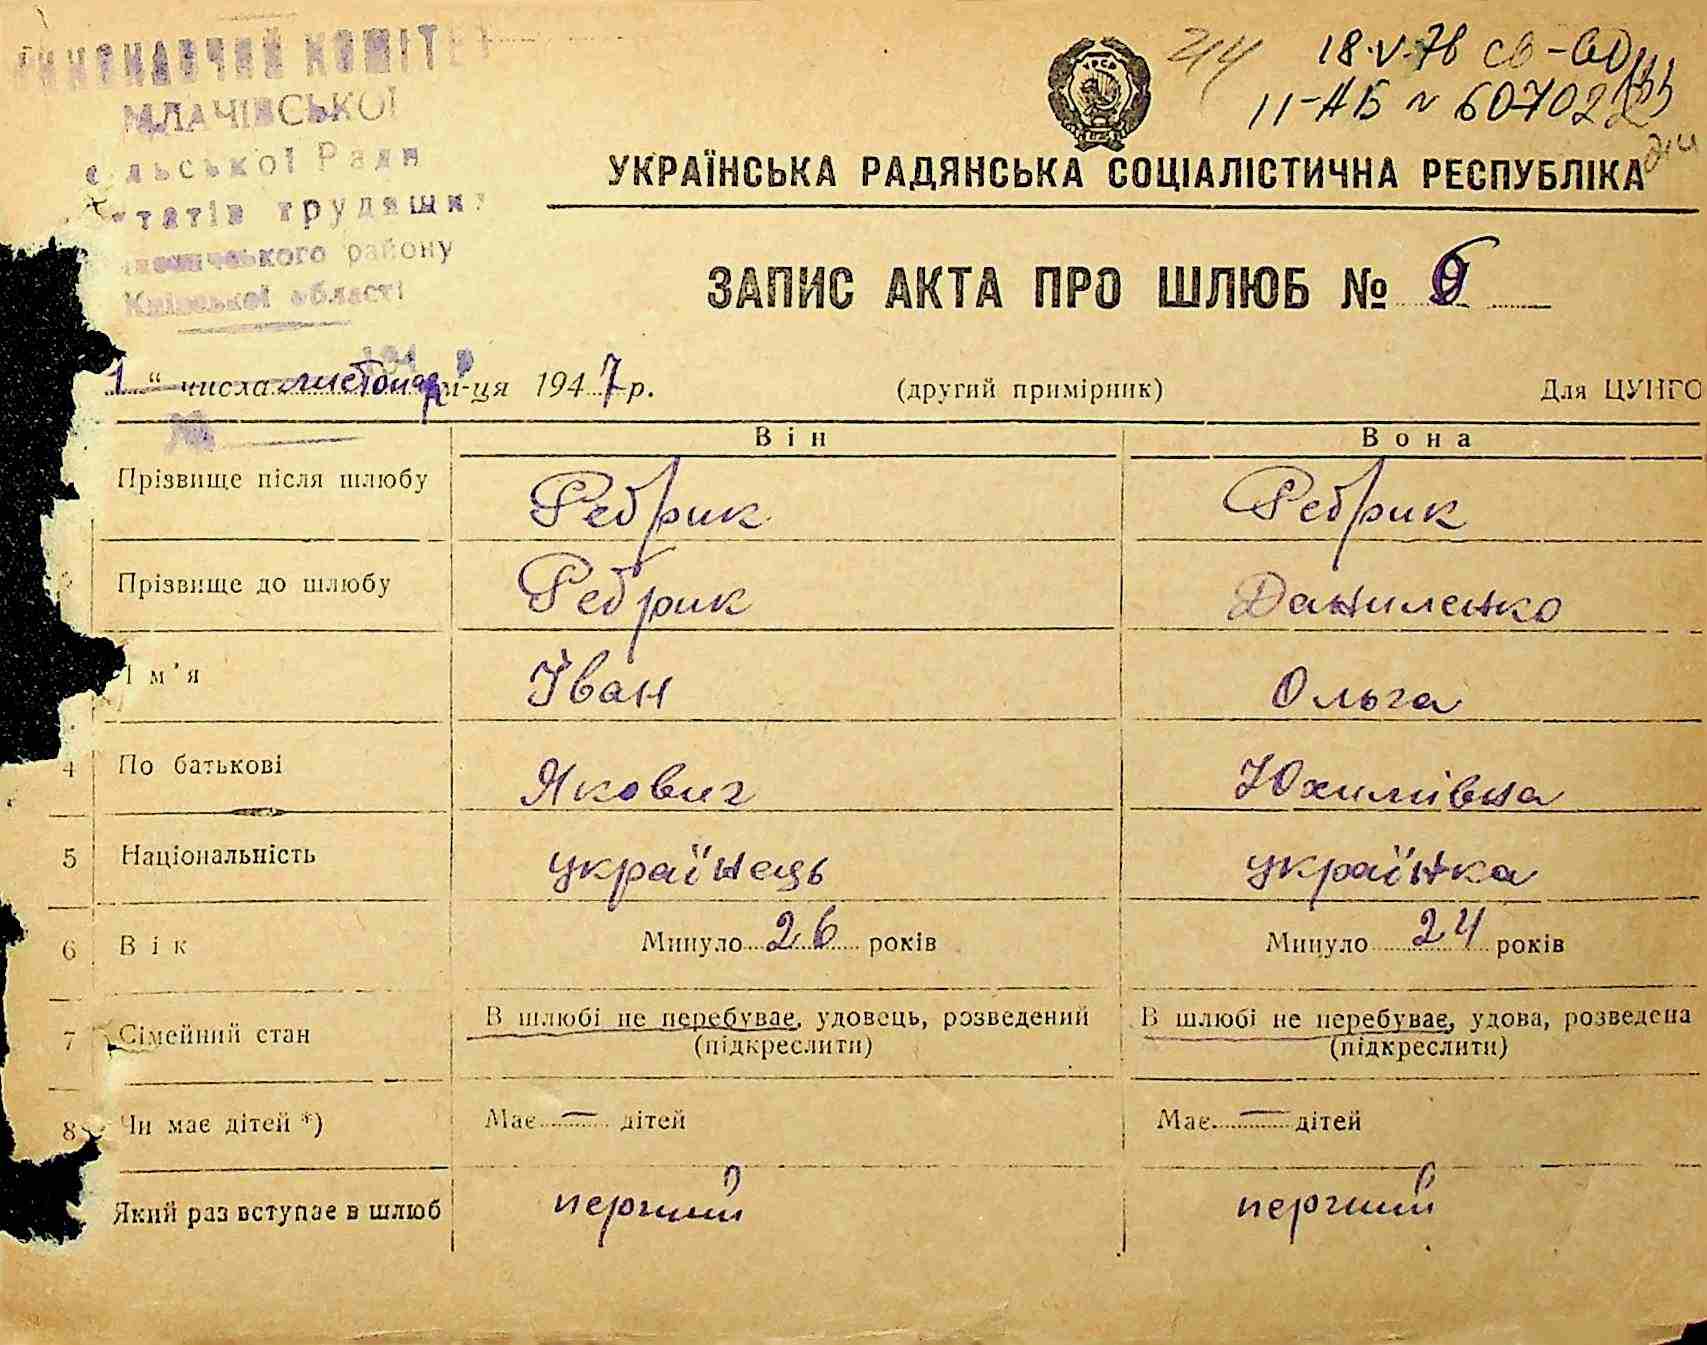 КОМІТЕТ
МЛАЧІВСЬКОЇ
сільської Ради
трудящих
району
Київської області
244
18·V·78 св-во
II-АБ № 607022
УРСР
УКРАЇНСЬКА РАДЯНСЬКА СОЦІАЛІСТИЧНА РЕСПУБЛІКА
ЗАПИС АКТА ПРО ШЛЮБ № 6
1 " числа листопад мі-ця 1947 р. (другий примірник) Для ЦУНГО
Він Вона
Прізвище після шлюбу Ребрик Ребрик
Прізвище до шлюбу Ребрик Даниленко
Ім'я Іван Ольга
4 По батькові Якович Юхимівна
5 Національність українець українка
6 Вік Минуло 26 років Минуло 24 років
7 Сімейний стан В шлюбі не перебуває, удовець, розведений В шлюбі не перебуває, удова, розведена
(підкреслити) (підкреслити)
8 Чи має дітей *) Має — дітей Має — дітей
Який раз вступає в шлюб перший перший